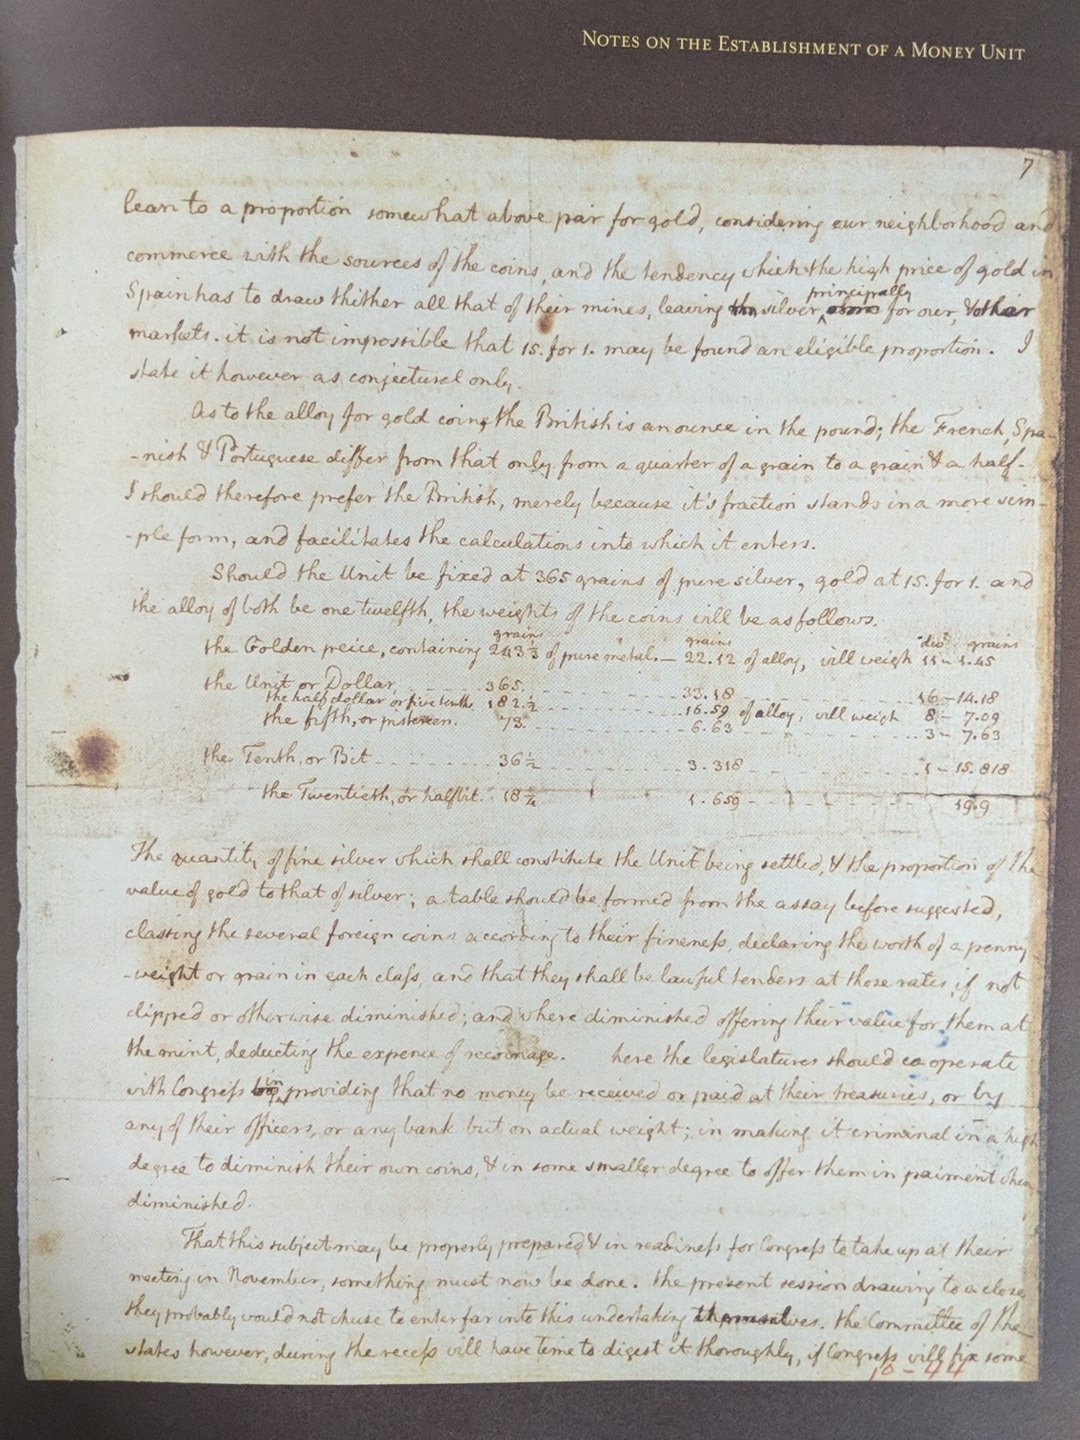 NOTES ON THE ESTABLISHMENT OF A MONEY UNIT
7
lean to a proportion somewhat above par for gold, considering our neighborhood and
commerce with the sources of the coins, and the tendency which the high price of gold in
Spain has to draw thither all that of their mines, leaving silver, principally for our, & other
markets. it is not impossible that 15. for 1. may be found an eligible proportion. I
state it however as conjectural only.
As to the alloy for gold coin, the British is an ounce in the pound; the French, Spa-
-nish & Portuguese differ from that only from a quarter of a grain to a grain & a half.
I should therefore prefer the British, merely because it's fraction stands in a more sim-
-ple form, and facilitates the calculations into which it enters.
Should the Unit be fixed at 365 grains of pure silver, gold at 15. for 1. and
the alloy of both be one twelfth, the weights of the coins will be as follows.
grains grains dwt grains
the Golden peice, containing 243 1/3 of pure metal.— 22.12 of alloy, will weigh 11 - 1.45
the Unit or Dollar, 365. 33.18 16 - 14.18
the half dollar or five tenths 182 1/2 16.59 of alloy, will weigh 8 - 7.09
the fifth, or pistereen. 73. 6.63 3 - 7.63
the Tenth, or Bit 36 1/2 3.318 1 - 15.818
the Twentieth, or half bit. 18 1/4 1.659 19.9
The quantity of fine silver which shall constitute the Unit being settled, & the proportion of the
value of gold to that of silver; a table should be formed from the assay before suggested,
classing the several foreign coins according to their fineness, declaring the worth of a penny
-weight or grain in each class, and that they shall be lawful tenders at those rates, if not
clipped or otherwise diminished; and where diminished offering their value for them at
the mint, deducting the expence of recoinage. here the legislatures should co operate
with Congress in providing that no money be received or paid at their treasuries, or by
any of their officers, or any bank but on actual weight; in making it criminal in a high
degree to diminish their own coins, & in some smaller degree to offer them in paiment when
diminished.
That this subject may be properly prepared & in readiness for Congress to take up at their
meeting in November, something must now be done. the present session drawing to a close,
they probably would not chuse to enter far into this undertaking themselves. the Committee of the
states however, during the recess will have time to digest it thoroughly, if Congress will fix some
10-44